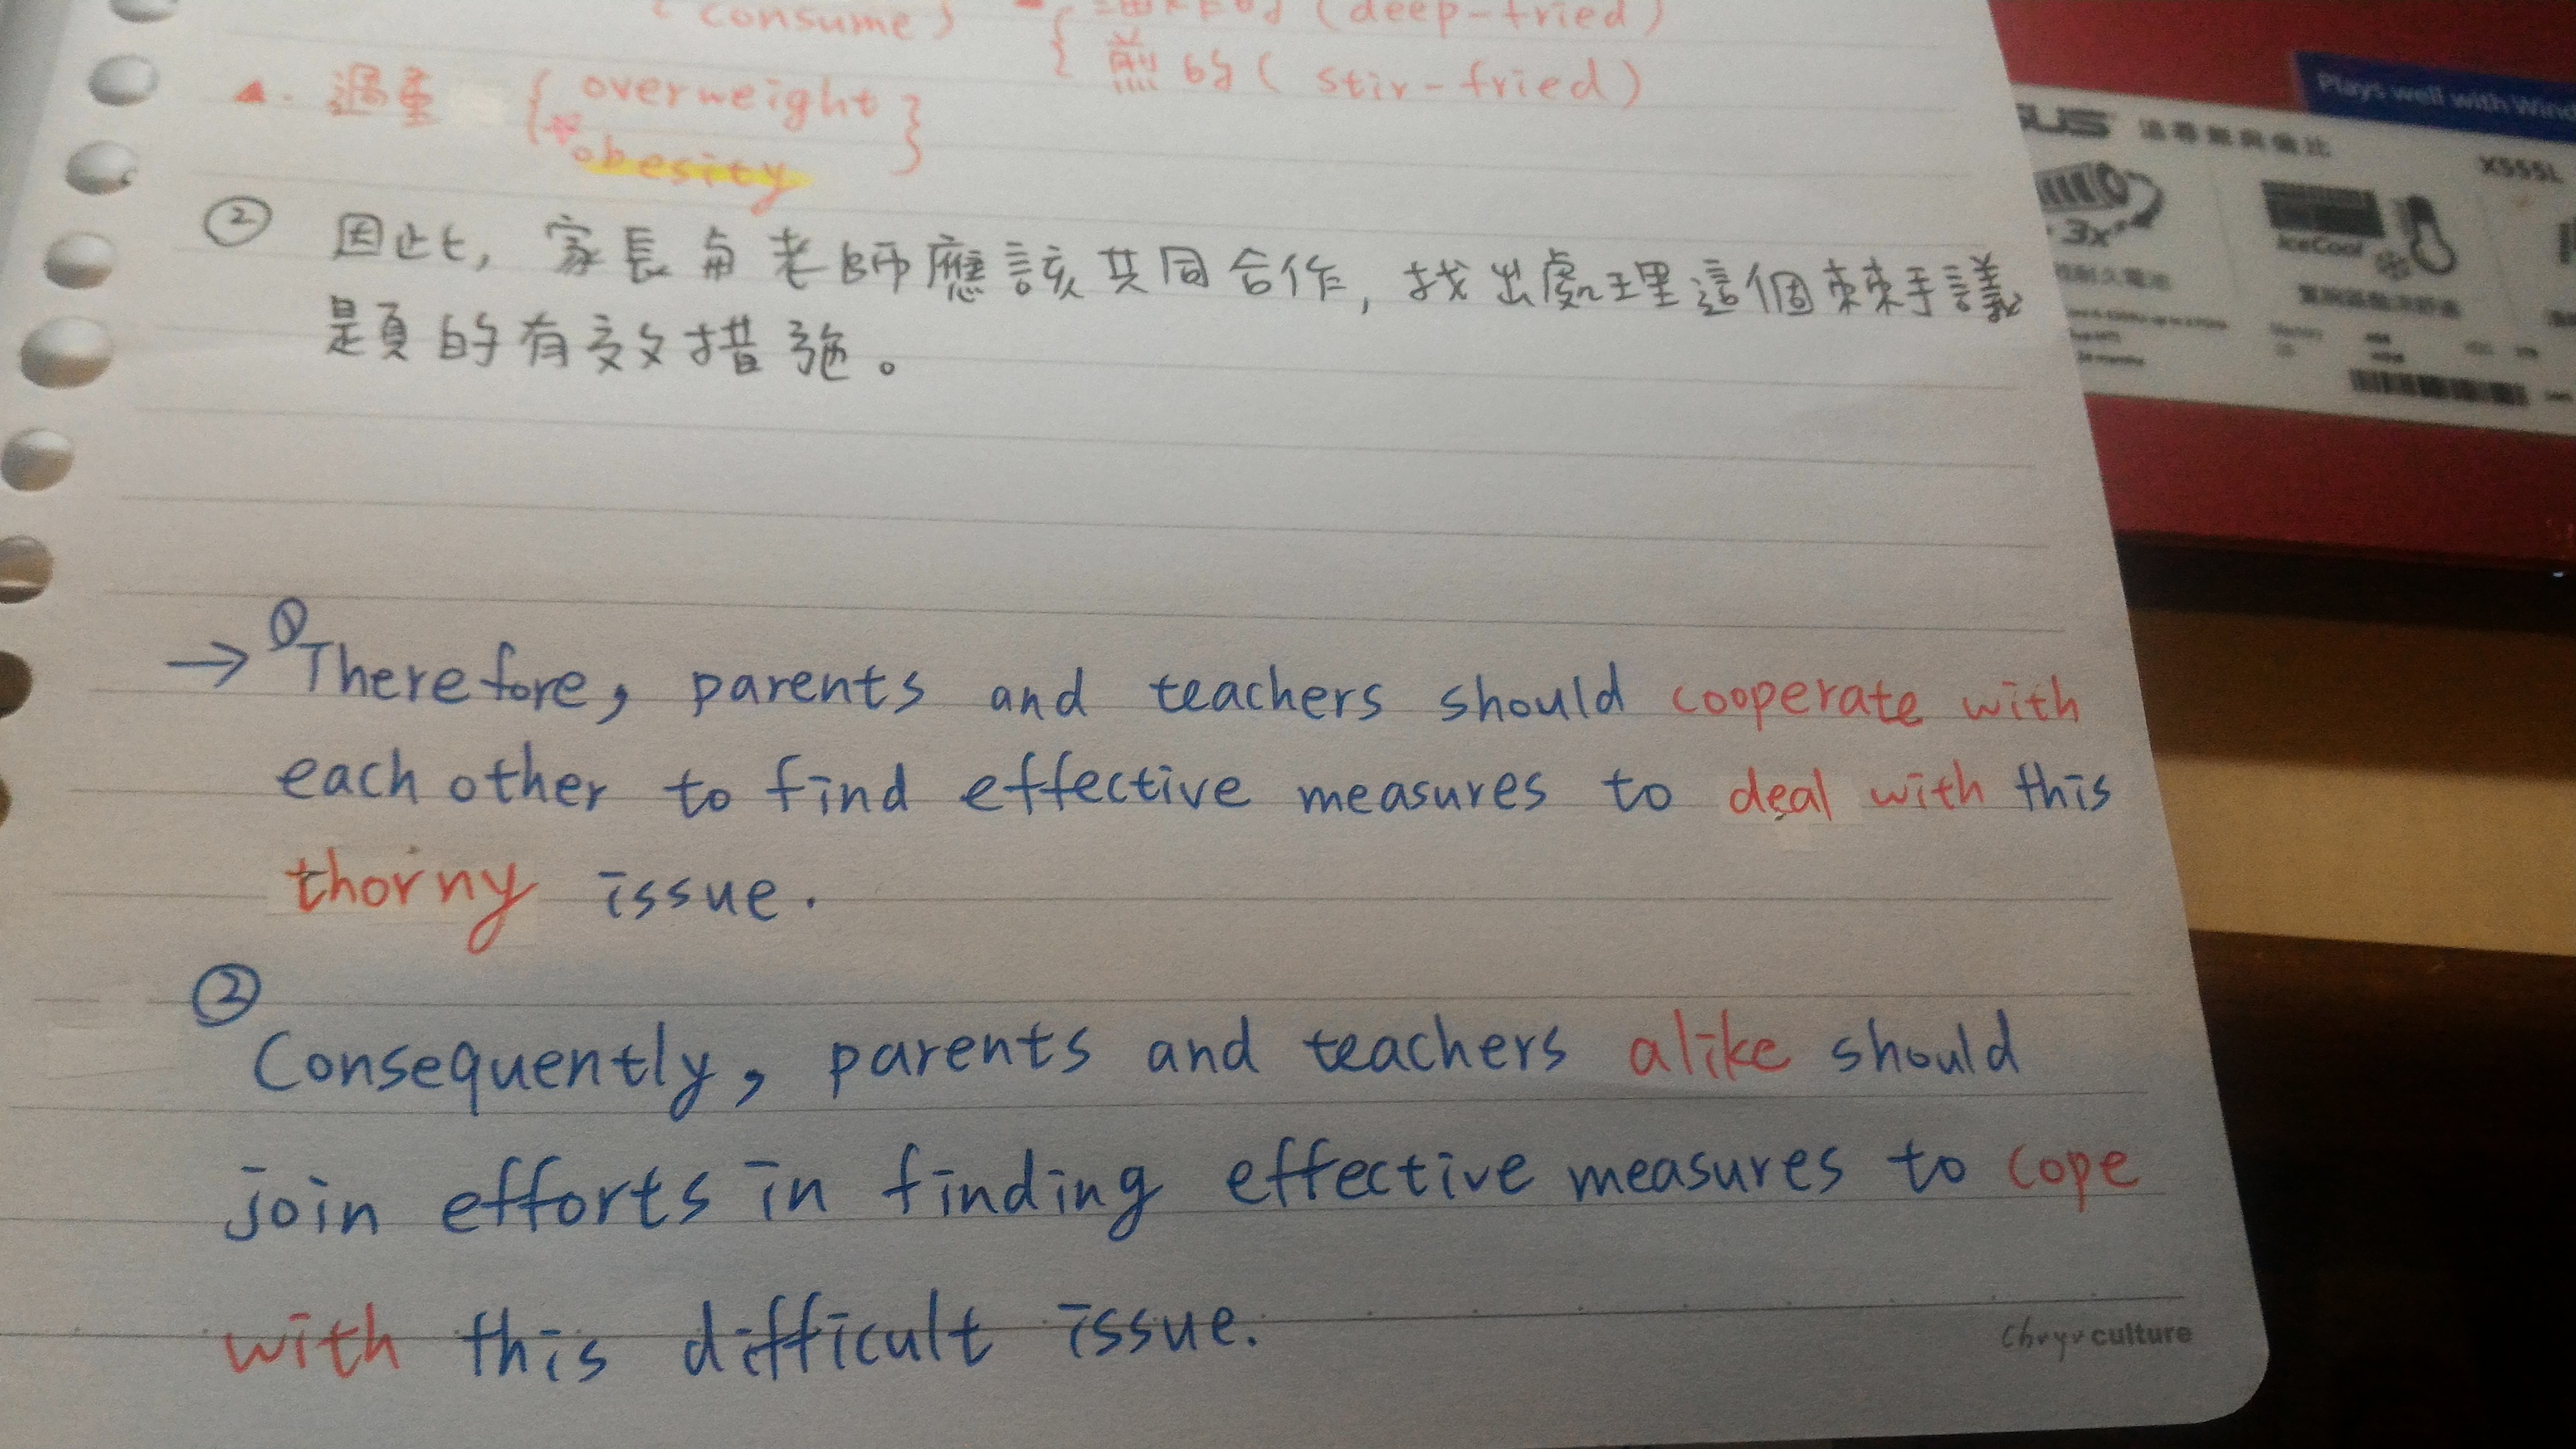 (consume)
(deep-fried)
煎的(stir-fried)
過重 { overweight }
obesity
② 因此, 家長與老師應該共同合作, 找出處理這個棘手議
題的有效措施。
→ ① Therefore, parents and teachers should cooperate with
each other to find effective measures to deal with this
thorny issue.
② Consequently, parents and teachers alike should
join efforts in finding effective measures to cope
with this difficult issue.
culture
Plays well with Wind
SUS
X555L
3x
IceCool